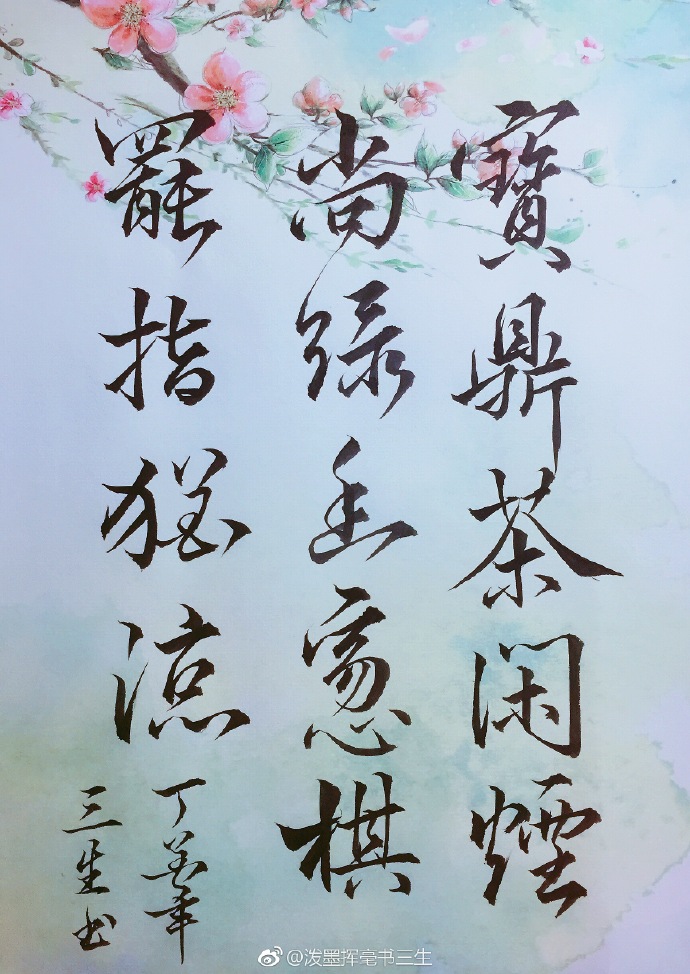 寶鼎茶闲煙
尚緑幽窓棋
罷指猶涼
丁酉年
三生书
@泼墨挥毫书三生